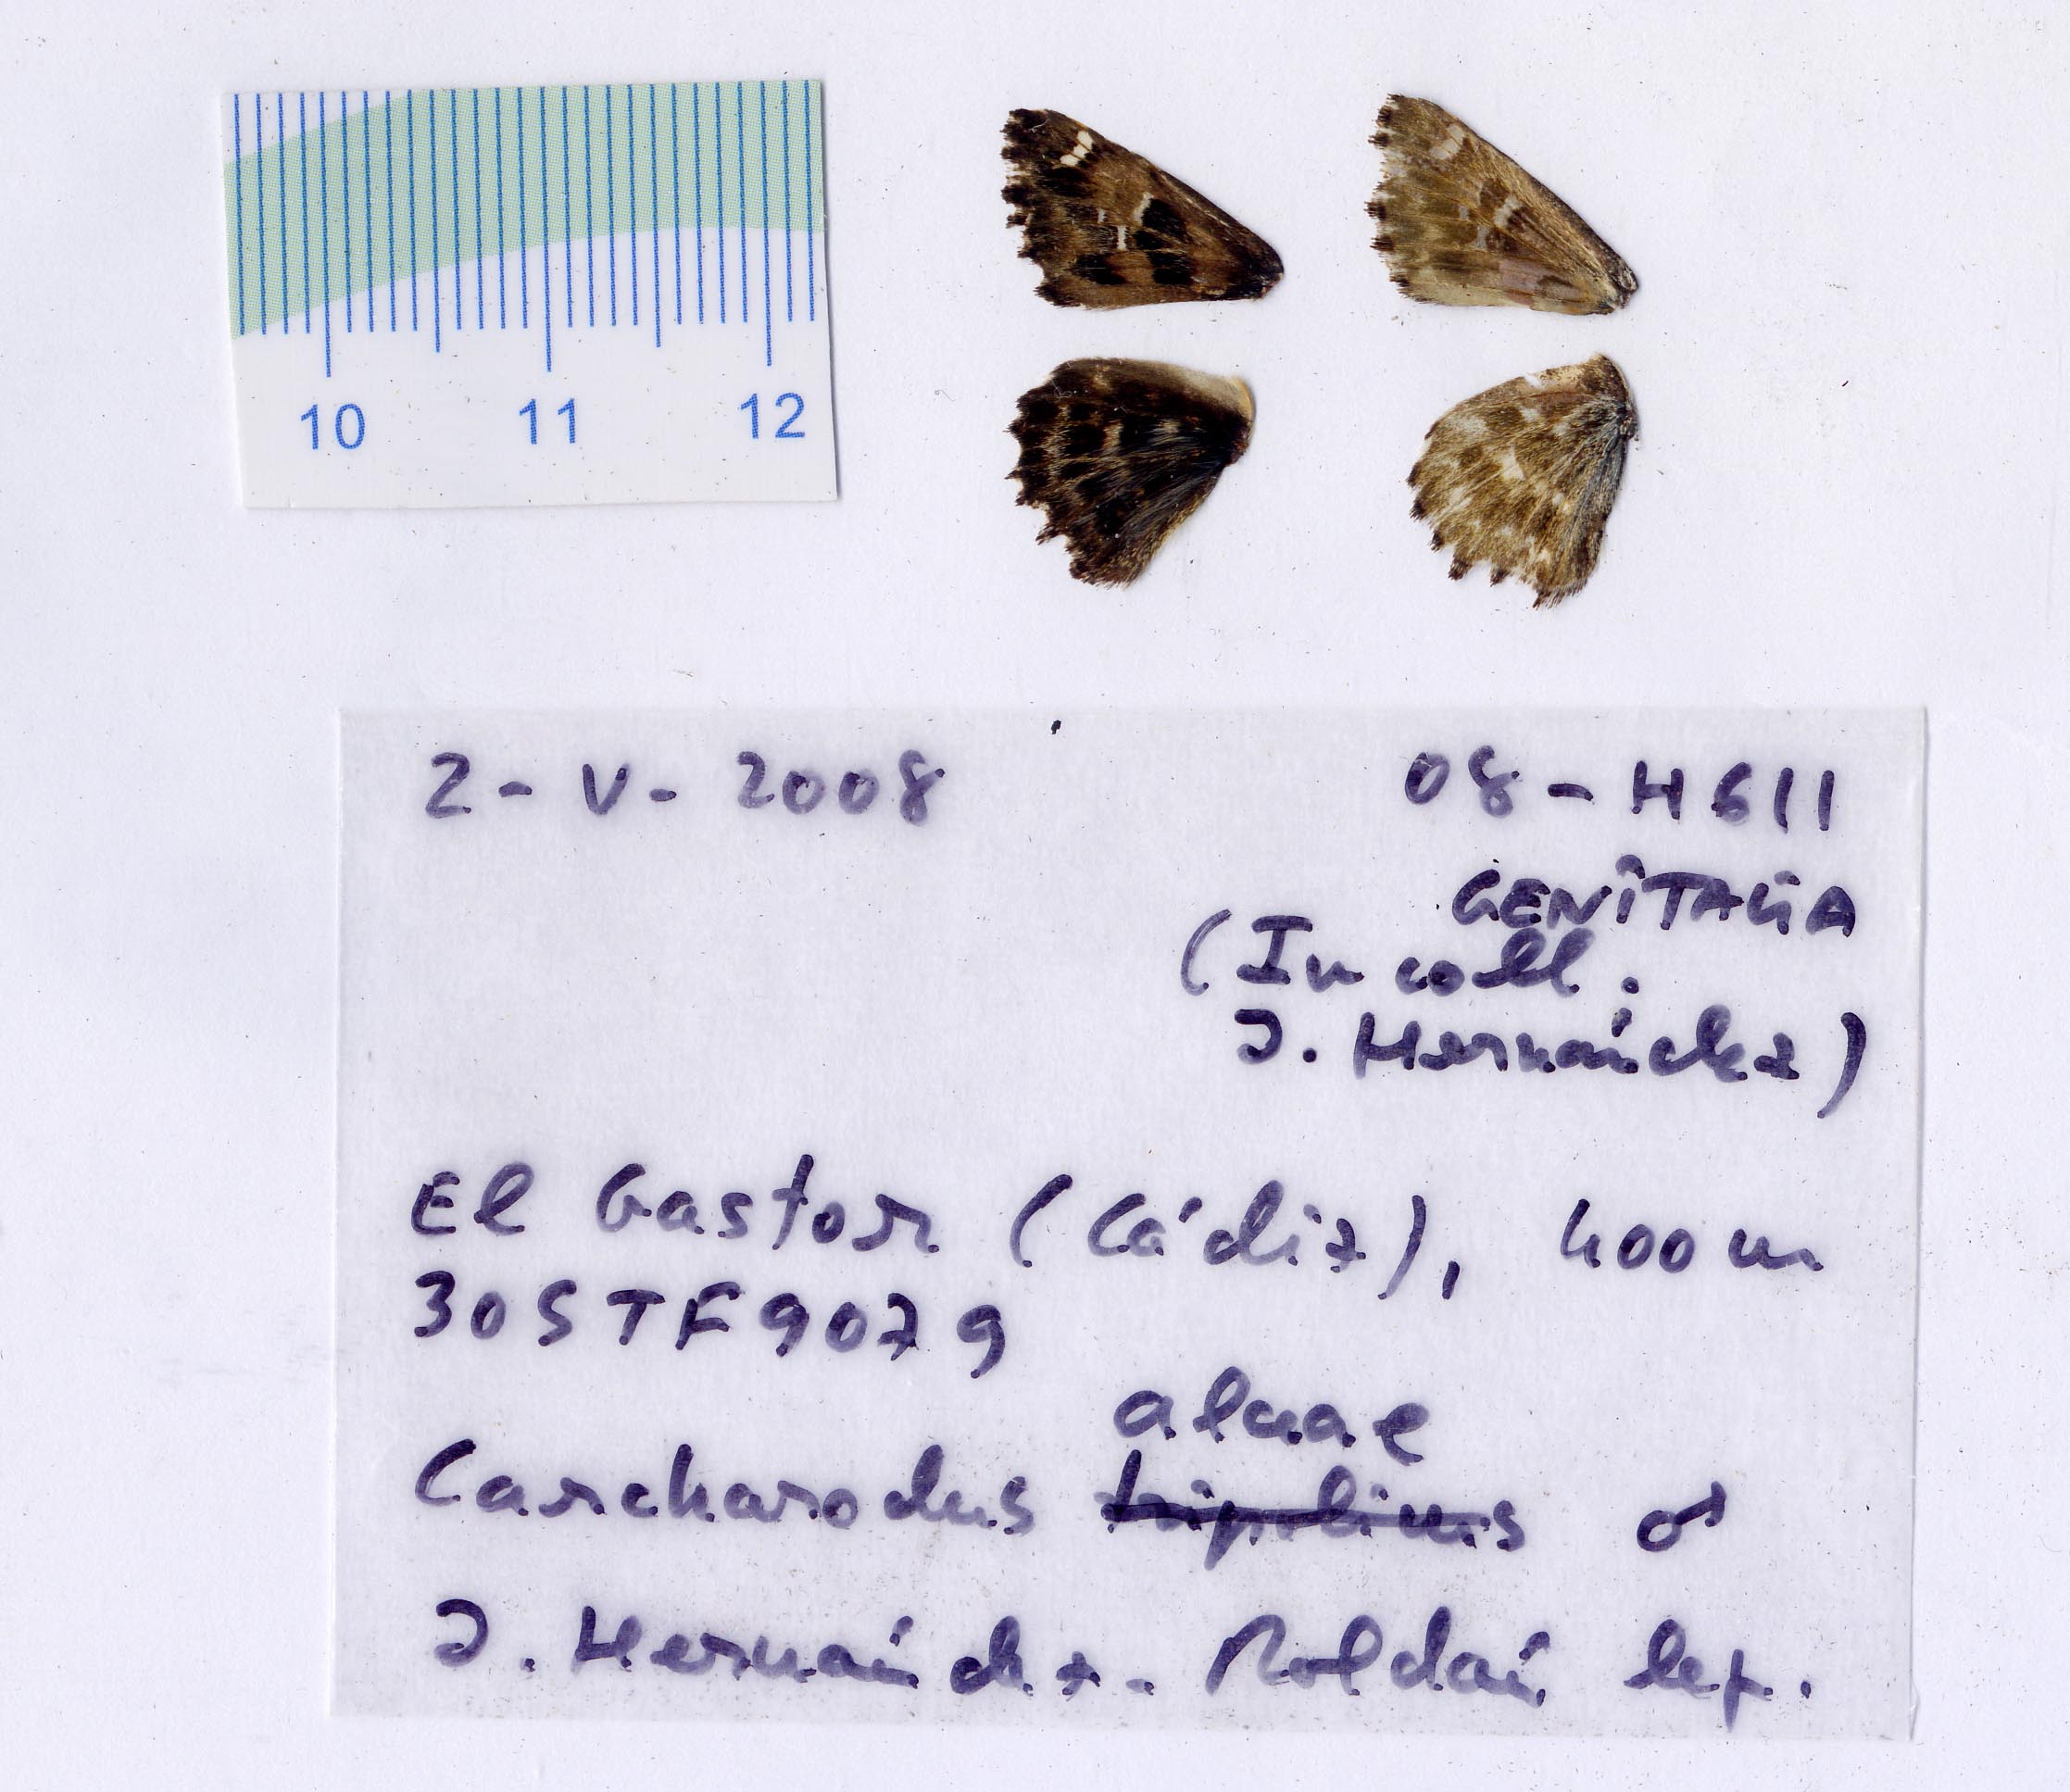 10 11 12
2 - V - 2008
08 - H611
GENITALIA
(In coll.
J. Hernández)
El Gastor (Cádiz), 400 m
30STF9079
alceae
Carcharodus tripolinus ♂
J. Hernández-Roldán leg.